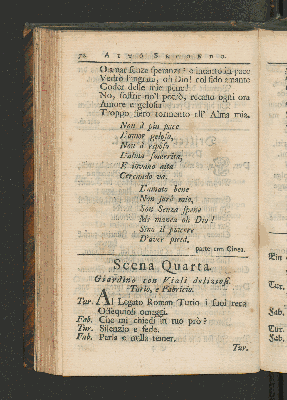 ATTO SECONDO.
O amar senza speranza! e intanto in pace
Veder l'ingrata, oh Dio! col fido amante
Goder delle mie pene!
No, soffrir nol potrò, recano ogni ora
Amore e gelosia
Troppo fiero tormento all' Alma mia.
Non à più pace
L'amor geloso,
Non à riposo
L'alma smarrita,
E invano aita
Cercando va.
L'amato bene
Non sarà mio,
Son senza spene
Me manca oh Dio!
Sino il piacere
D'aver pietà.
parte con Cinea.
Scena Quarta.
Giardino con Viali deliziosi.
Turio, e Fabricio.
Tur. Al Legato Roman Turio i suoi reca
Ossequiosi omaggi.
Fab. Che mi chiedi in tuo prò?
Tur. Silenzio e fede.
Fab. Parla e nulla temer.
Tur.